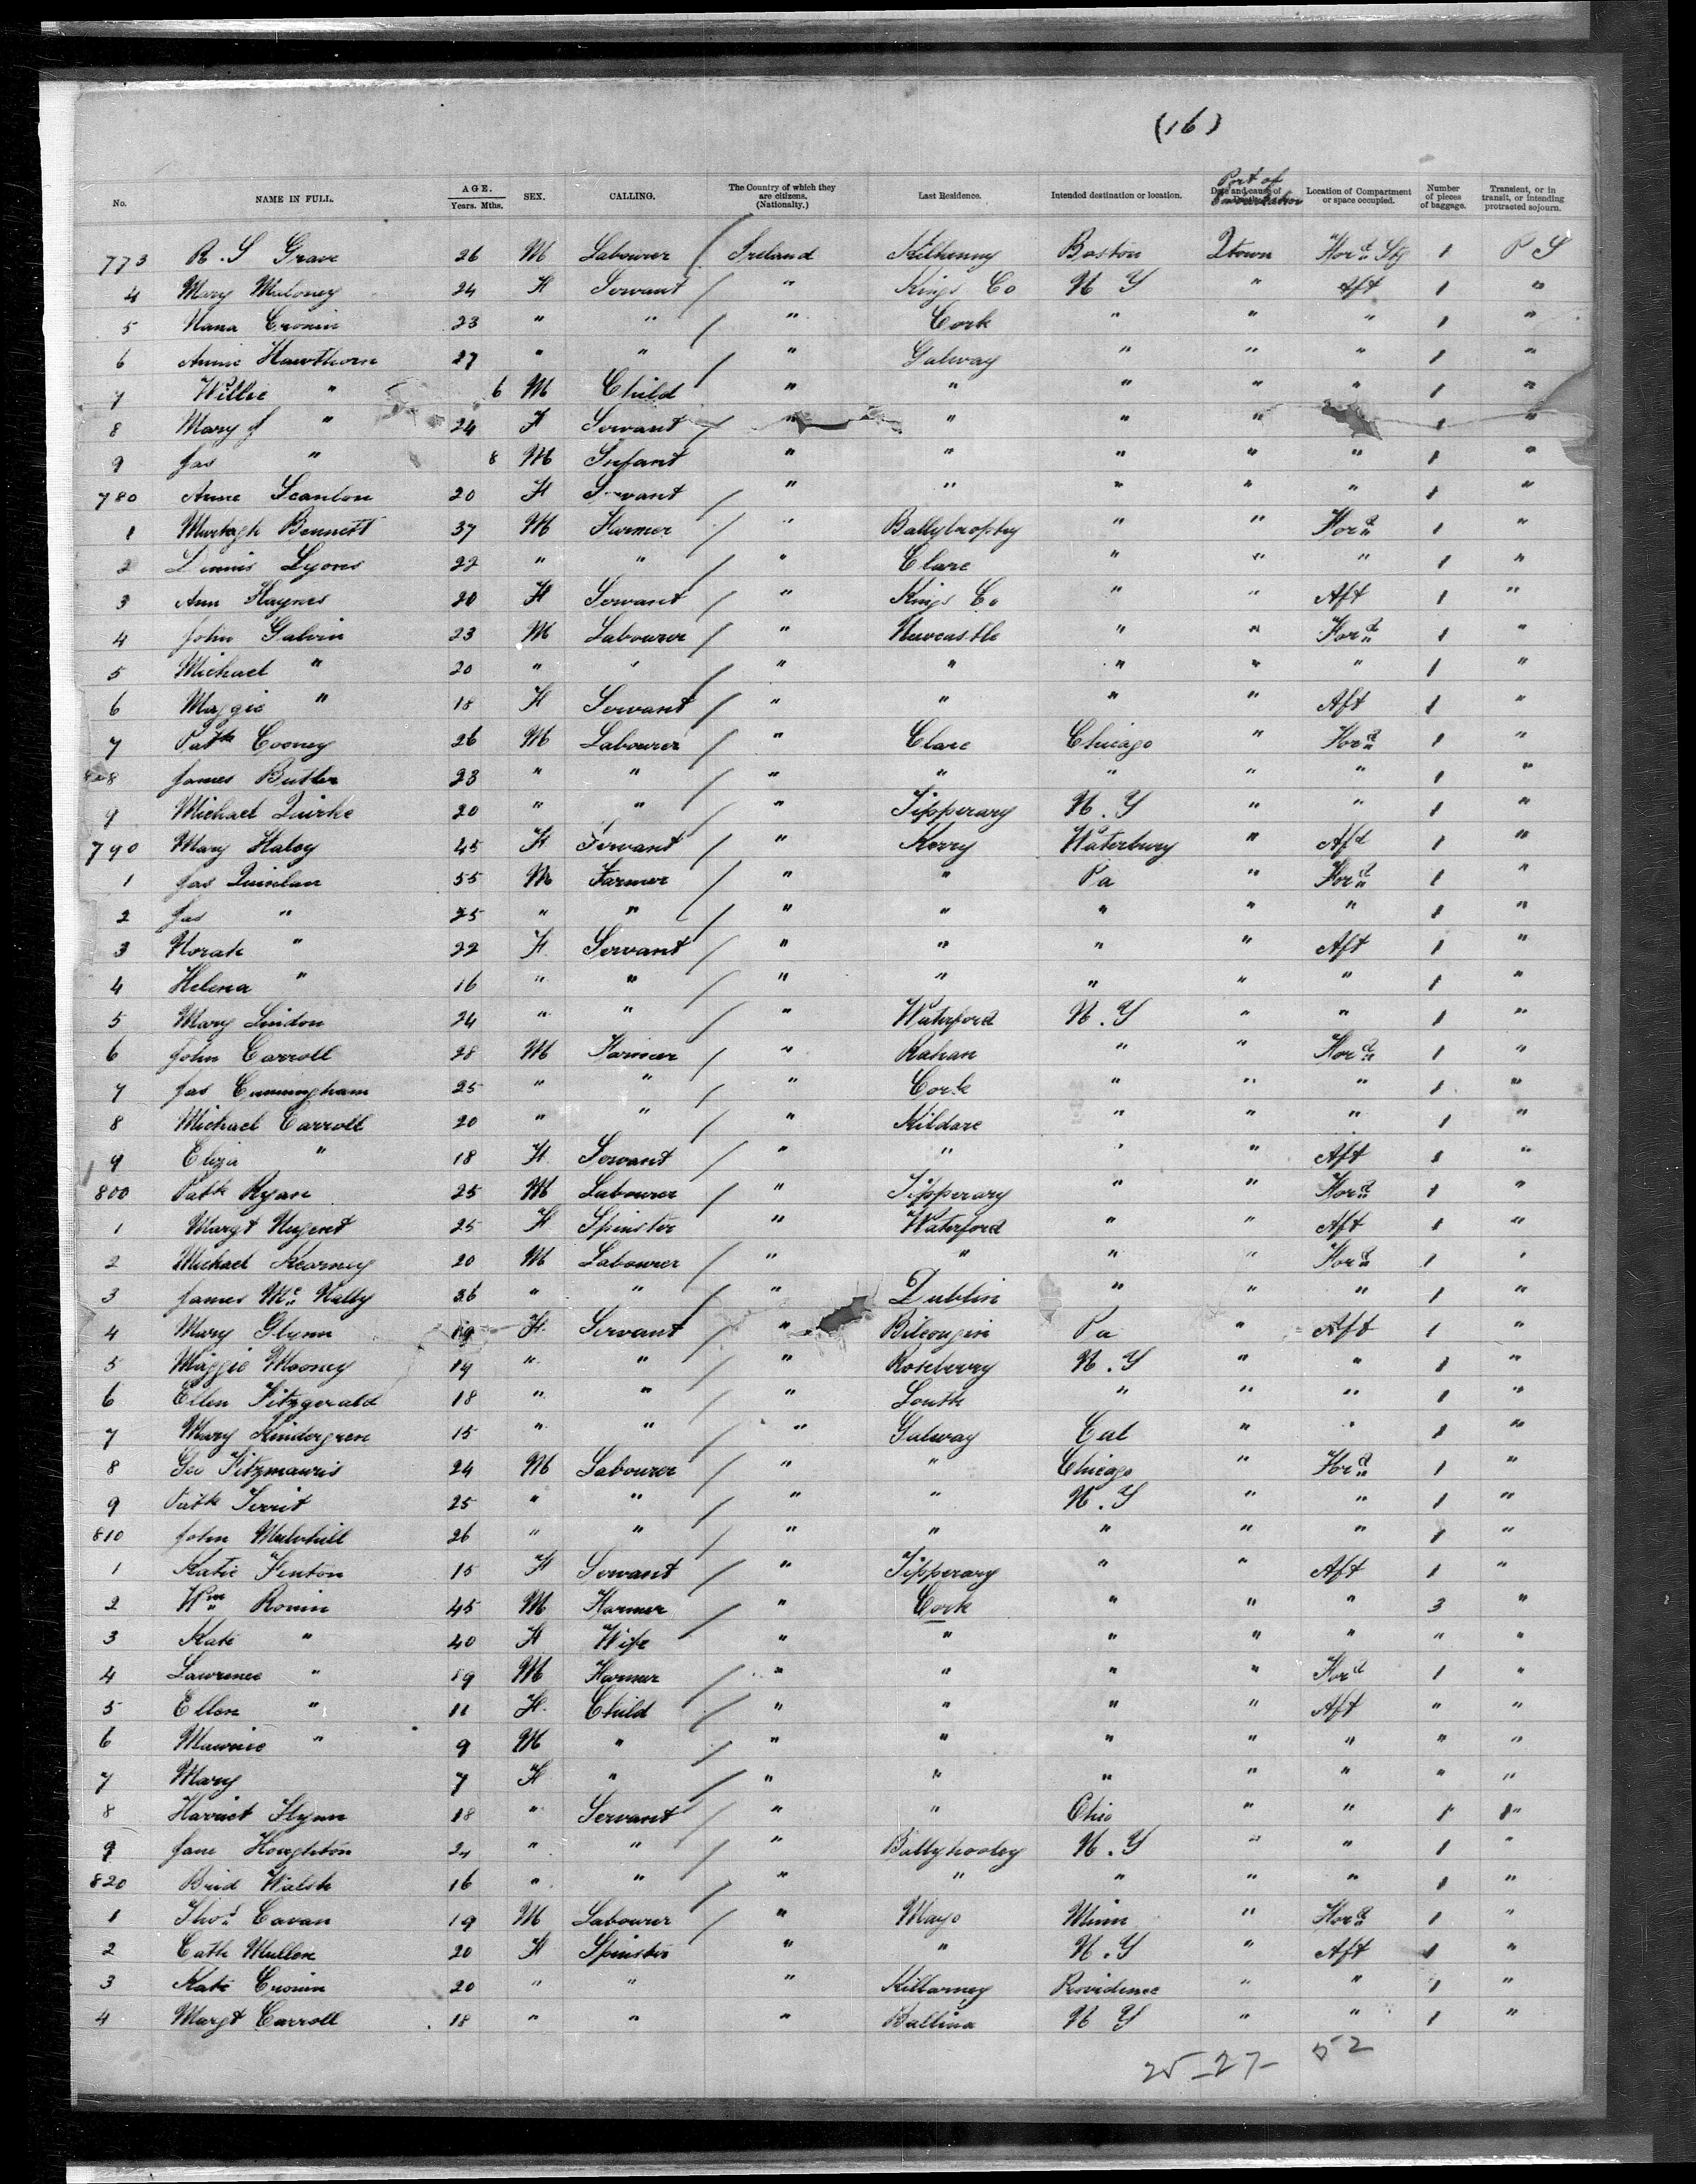 (16)
No. NAME IN FULL. AGE. Years. Mths. SEX. CALLING. The Country of which they are citizens. (Nationalty.) Last Residence. Intended destination or location. Port of Location of Compartment or space occupied. Number of pieces of baggage. Transient, or in transit, or intending protracted sojourn.
773 R. S Grave 26 M Labourer Ireland Kilkenny Boston Qtown For'd Stg 1 P S
4 Mary Maloney 24 F Servant " Kings Co N Y " Aft 1 "
5 Nana Cronin 23 " " " Cork " " " 1 "
6 Annie Hawthorn 27 " " " Galway " " " 1 "
7 Willie " 6 M Child " " " " " 1 "
8 Mary J " 24 F Servant " " " " 1 "
9 Jas " 8 M Infant " " " " " 1 "
780 Annie Scanlon 20 F Servant " " " " " 1 "
1 Murtagh Bennett 37 M Farmer " Ballybrophy " " For'd 1 "
2 Dennis Lyons 22 " " " Clare " " " 1 "
3 Ann Haynes 20 F Servant " Kings Co " " Aft 1 "
4 John Galvin 23 M Labourer " Newcastle " " For'd 1 "
5 Michael " 20 " " " " " " " 1 "
6 Maggie " 18 F Servant " " " " Aft 1 "
7 Patk Cooney 26 M Labourer " Clare Chicago " For'd 1 "
8 James Butler 23 " " " " " " " 1 "
9 Michael Quirke 20 " " " Tipperary N. Y " " 1 "
790 Mary Haley 45 F Servant " Kerry Waterbury " Aft 1 "
1 Jas Quinlan 55 M Farmer " " Pa " For'd 1 "
2 Jas " 25 " " " " " " " 1 "
3 Norah " 22 F Servant " " " " Aft 1 "
4 Helena " 16 " " " " " " " 1 "
5 Mary Lindon 24 " " " Waterford N. Y " " 1 "
6 John Carroll 28 M Farmer " Rahan " " For'd 1 "
7 Jas Cunningham 25 " " " Cork " " " 1 "
8 Michael Carroll 20 " " " Kildare " " " 1 "
9 Eliza " 18 F Servant " " " " Aft 1 "
800 Patk Ryan 25 M Labourer " Tipperary " " For'd 1 "
1 Margt Nugent 25 F Spinster " Waterford " " Aft 1 "
2 Michael Kearney 20 M Labourer " " " " For'd 1 "
3 James Mc Nally 36 " " " Dublin " " " 1 "
4 Mary Glynn 19 F Servant " Pa " Aft 1 "
5 Maggie Mooney 19 " " " Roseberry N. Y " " 1 "
6 Ellen Fitzgerald 18 " " " Louth " " " 1 "
7 Mary Kindergren 15 " " " Galway Cal " " 1 "
8 Geo Fitzmauris 24 M Labourer " " Chicago " For'd 1 "
9 Patk Territ 25 " " " " N. Y " " 1 "
810 John Mulvihill 26 " " " " " " " 1 "
1 Katie Fenton 15 F Servant " Tipperary " " Aft 1 "
2 Wm Ronin 45 M Farmer " Cork " " " 3 "
3 Kate " 40 F Wife " " " " " " "
4 Lawrence " 19 M Farmer " " " " For'd 1 "
5 Ellen " 11 F Child " " " " Aft " "
6 Maurice " 9 M " " " " " " " "
7 Mary 7 F " " " " " " " "
8 Harriet Flynn 18 " Servant " " Ohio " " 1 "
9 Jane Houghton 24 " " " Ballyhooley N. Y " " 1 "
820 Brid Walsh 16 " " " " " " " 1 "
1 Thos Cavan 19 M Labourer " Mayo Minn " For'd 1 "
2 Cath Mullen 20 F Spinster " " N. Y " Aft 1 "
3 Kate Cronin 20 " " " Killarney Providence " " 1 "
4 Margt Carroll 18 " " " Ballina N Y " " 1 "
25-27- 52